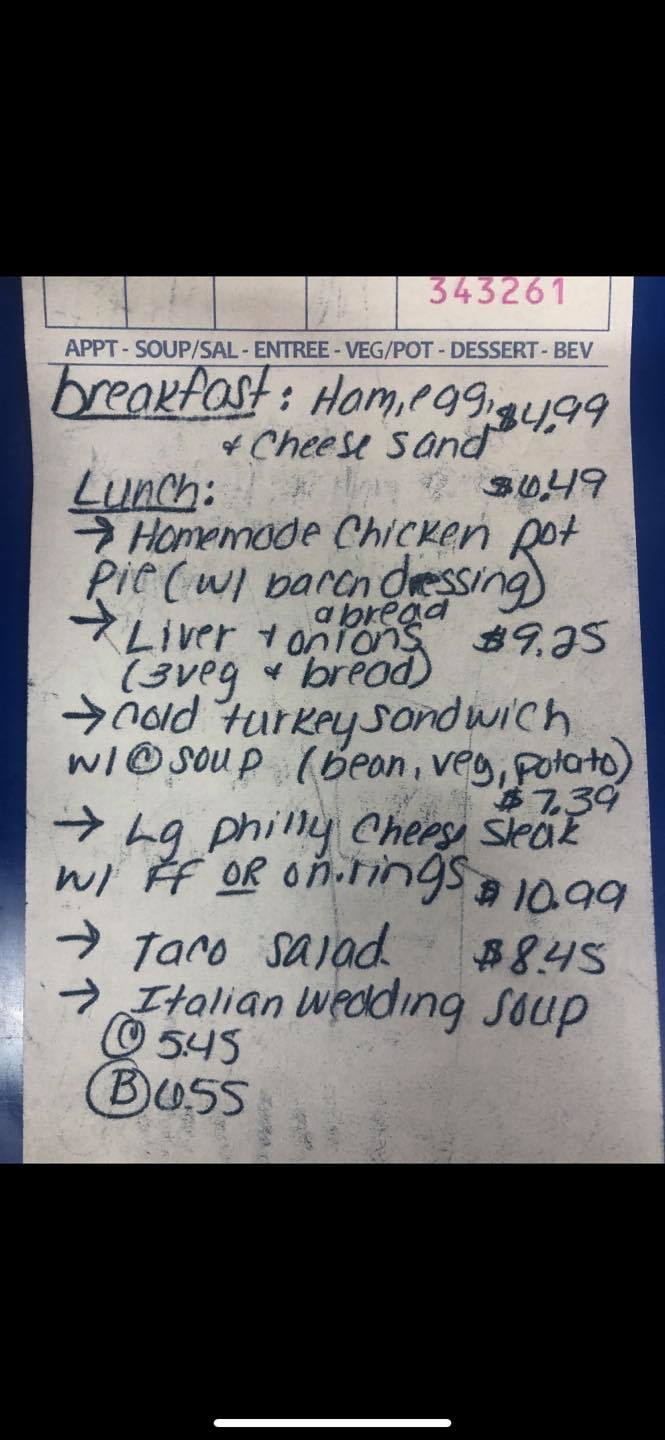 343261
APPT - SOUP/SAL - ENTREE - VEG/POT - DESSERT - BEV
breakfast: Ham, egg, $4.99
+ Cheese Sand
Lunch: $6.49
→ Homemade Chicken pot
pie (w/ bacon dressing)
a bread
→ Liver + onions $9.25
(3 veg + bread)
→ Cold turkey sandwich
w/ Ⓒ soup (bean, veg, potato)
$7.39
→ Lg philly Cheese Steak
w/ FF OR on.rings $10.99
→ Taco salad $8.45
→ Italian Wedding Soup
Ⓒ 5.45
Ⓑ 6.55